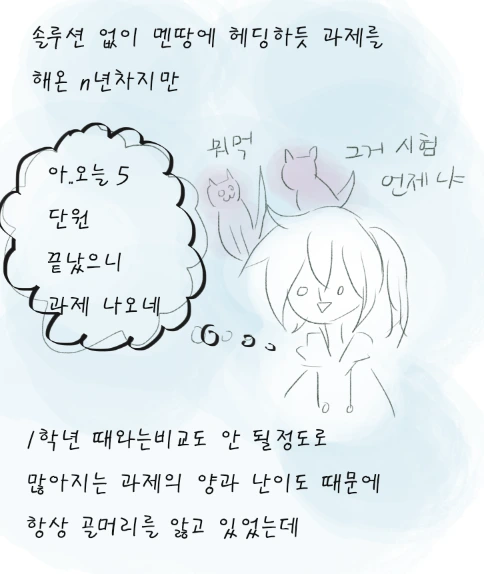 솔루션 없이 멘땅에 헤딩하듯 과제를
해온 n년차지만
뭐먹
그거 시험
언제냐
아..오늘 5
단원
끝났으니
과제 나오네
1학년 때와는비교도 안 될정도로
많아지는 과제의 양과 난이도 때문에
항상 골머리를 앓고 있었는데